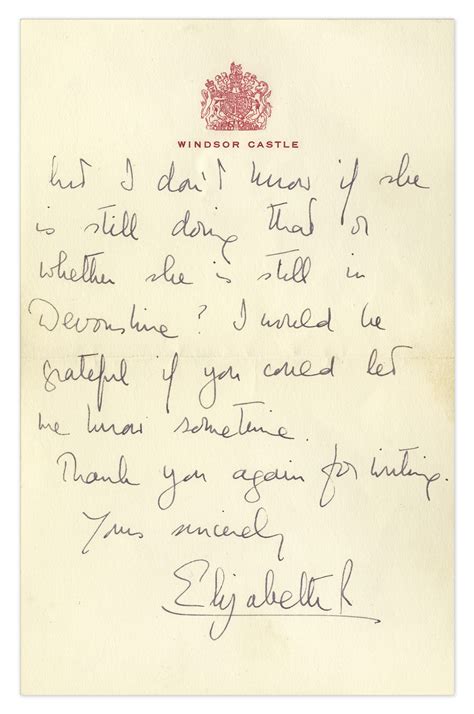 WINDSOR CASTLE
but I don't know if she
is still doing that or
whether she is still in
Devonshire? I would be
grateful if you could let
me know sometime.
Thank you again for writing.
Yours sincerely
Elizabeth R